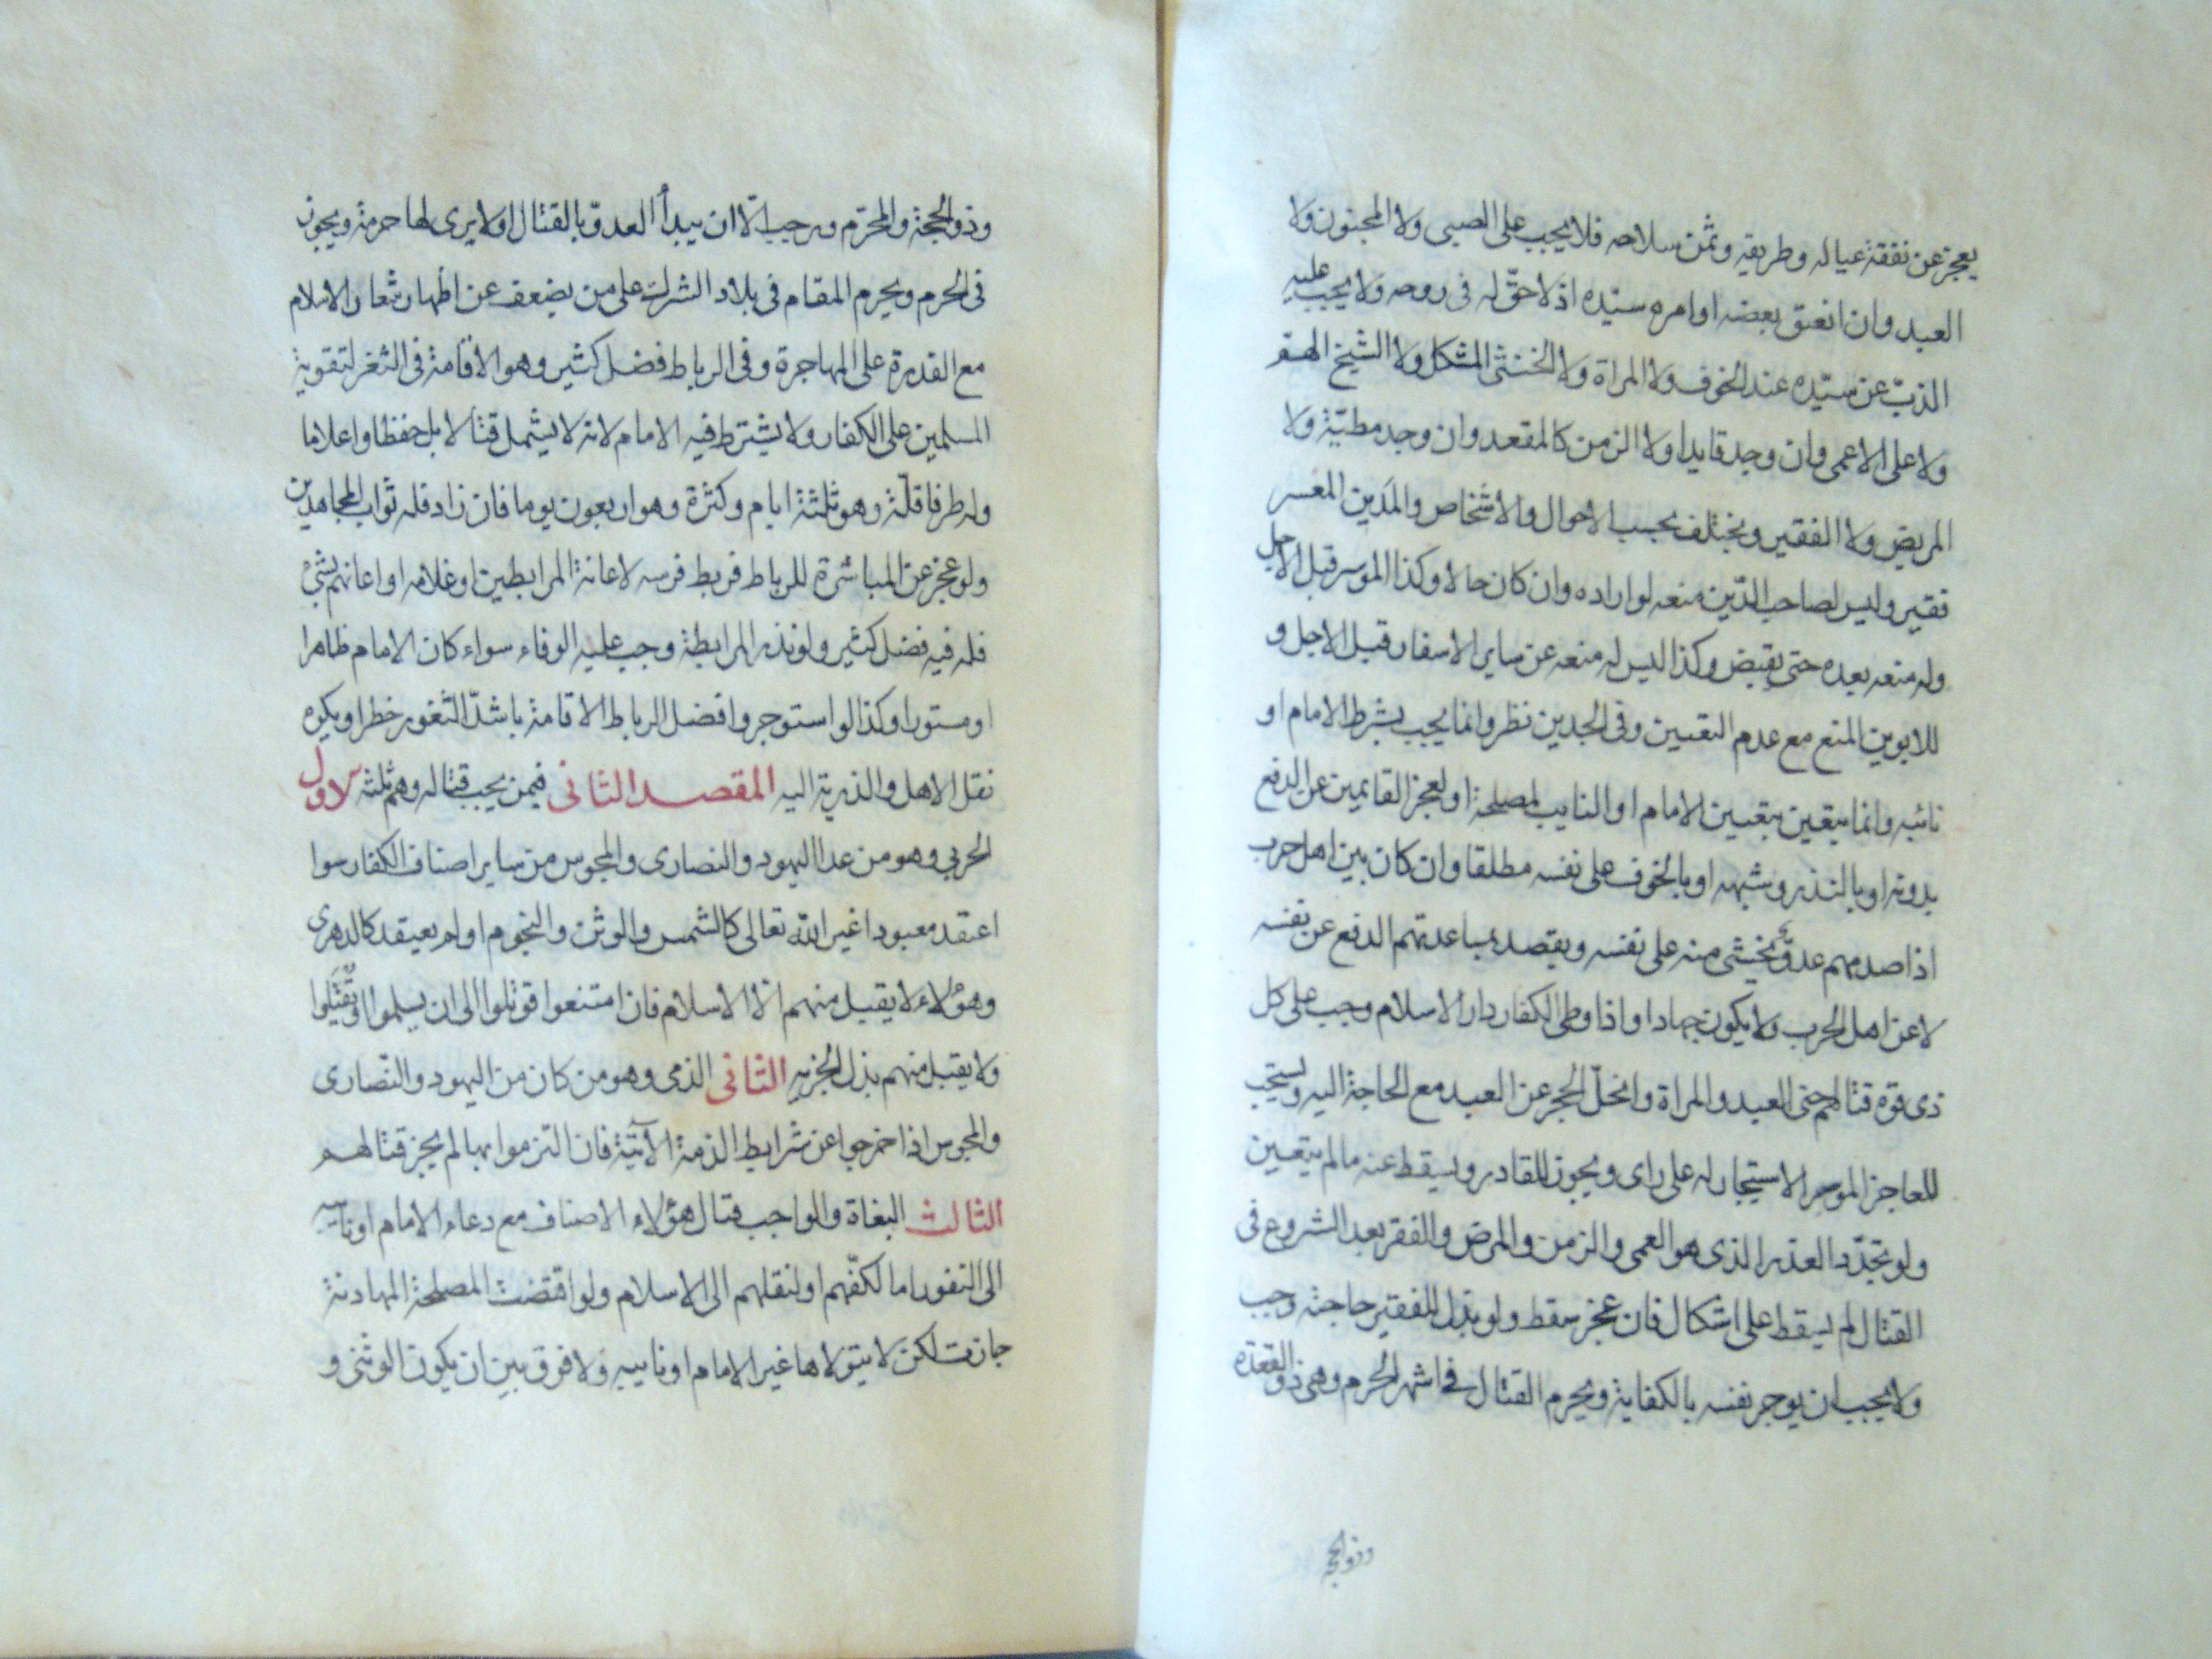 يعجز عن نفقة عياله وطريقه وثمن سلاحه فلا يجب على الصبى ولا المجنون ولا
العبد وان انعتق بعضه او امره سيّده اذ لا حقّ له فى روحه ولا يجب عليه
الذبّ عن سيّده عند الخوف ولا المراة ولا الخنثى المشكل ولا الشيخ الهم
ولا على الاعمى وان وجد قايدا ولا الزمن كالمقعد وان وجد مطيّة ولا
المريض ولا الفقير ويختلف بحسب الاحوال والاشخاص والمَدين المعسر
فقير وليس لصاحب الدّين منعه لو اراده وان كان حالا وكذا الموسر قبل الاجل
وله منعه بعده حتى يقبض وكذا ليس له منعه عن ساير الاسفار قبل الاجل و
للابوين المنع مع عدم التعيين وفى الجدين نظر وانما يجب بشرط الامام او
نائبه وانما يتعين بتعيين الامام او النايب لمصلحة او لعجز القايمين عن الدفع
بدونه او بالنذر وشبهه او بالخوف على نفسه مطلقا وان كان بين اهل حرب
اذا صدمهم عدوّ يخشى منه على نفسه ويقصد بمساعدتهم الدفع عن نفسه
لا عن اهل الحرب ولا يكون جهادا واذا وطى الكفار دار الاسلام وجب على كل
ذى قوة قتالهم حتى العبد والمراة وانحلّ الحجر عن العبد مع الحاجة اليه ويستحب
للعاجز الموسر الاستيجار له على راى ويجوز للقادر ويسقط عنه ما لم يتعين
ولو تجدّد العذر الذى هو العمى والزمن والمرض والفقر بعد الشروع فى
القتال لم يسقط على اشكال فان عجز سقط ولو بذل للفقير حاجته وجب
ولا يجب ان يوجر نفسه بالكفاية ويحرم القتال فى اشهر الحرم وهى ذو القعدة
وذو الحجة
وذو الحجة والمحرّم ورجب الّا ان يبدأ العدو بالقتال او لا يرى لها حرمة ويجوز
فى الحرم ويحرم المقام فى بلاد الشرك على من يضعف عن اظهار شعار الاسلام
مع القدرة على المهاجرة وفى الرباط فضل كثير وهو الاقامة فى الثغر لتقوية
المسلمين على الكفار ولا يشترط فيه الامام لانه لا يشمل قتالا بل حفظا واعلاما
وله طرفا قلّة وهو ثلثة ايام وكثرة وهو اربعون يوما فان زاد فله ثواب المجاهدين
ولو عجز عن المباشرة للرباط فربط فرسه لاعانة المرابطين او غلامه او اعانهم بشئ
فله فيه فضل كثير ولو نذر المرابطة وجب عليه الوفاء سواء كان الامام ظاهرا
او مستورا وكذا لو استوجر وافضل الرباط الاقامة باشدّ الثغور خطرا ويكره
نقل الاهل والذرية اليه المقصد الثانى فيمن يجب قتاله وهم ثلثة الاول
الحربي وهو من عدا اليهود والنصارى والمجوس من ساير اصناف الكفار سوا
اعتقد معبودا غير الله تعالى كالشمس والوثن والنجوم او لم يعتقد كالدهرى
وهؤلاء لا يقبل منهم الا الاسلام فان امتنعوا قوتلوا الى ان يسلموا او يُقتَلوا
ولا يقبل منهم بذل الجزيه الثانى الذمى وهو من كان من اليهود والنصارى
والمجوس اذا خرجوا عن شرايط الذمة الآتية فان التزموا بها لم يجز قتالهم
الثالث البغاة والواجب قتال هؤلاء الاصناف مع دعاء الامام او نايبه
الى النفور اما لكفّهم او لنقلهم الى الاسلام ولو اقتضت المصلحة المهادنة
جازت لكن لا يتولاها غير الامام او نايبه ولا فرق بين ان يكون الوثنى و